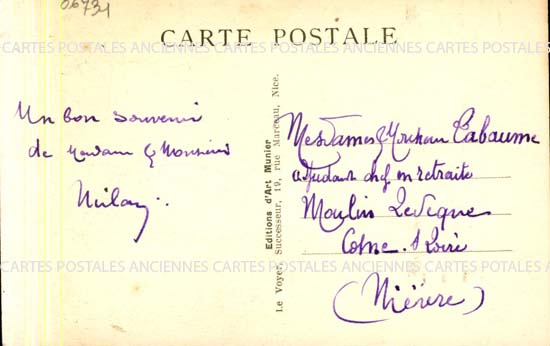 06734
CARTE POSTALE
CARTES POSTALES ANCIENNES CARTES POSTALES ANCIENNES CARTES POSTALES
Un bon souvenir
de Madame & Monsieur
Editions d'Art Munier
Le Voyer, Successeur, 19, rue Marceau, Nice.
Mesdames & Labaume
adjudant chef en retraite
Moulin Levêque
Cosne s Loire
(Nièvre)
CARTES POSTALES ANCIENNES CARTES POSTALES ANCIENNES CARTES POSTALES